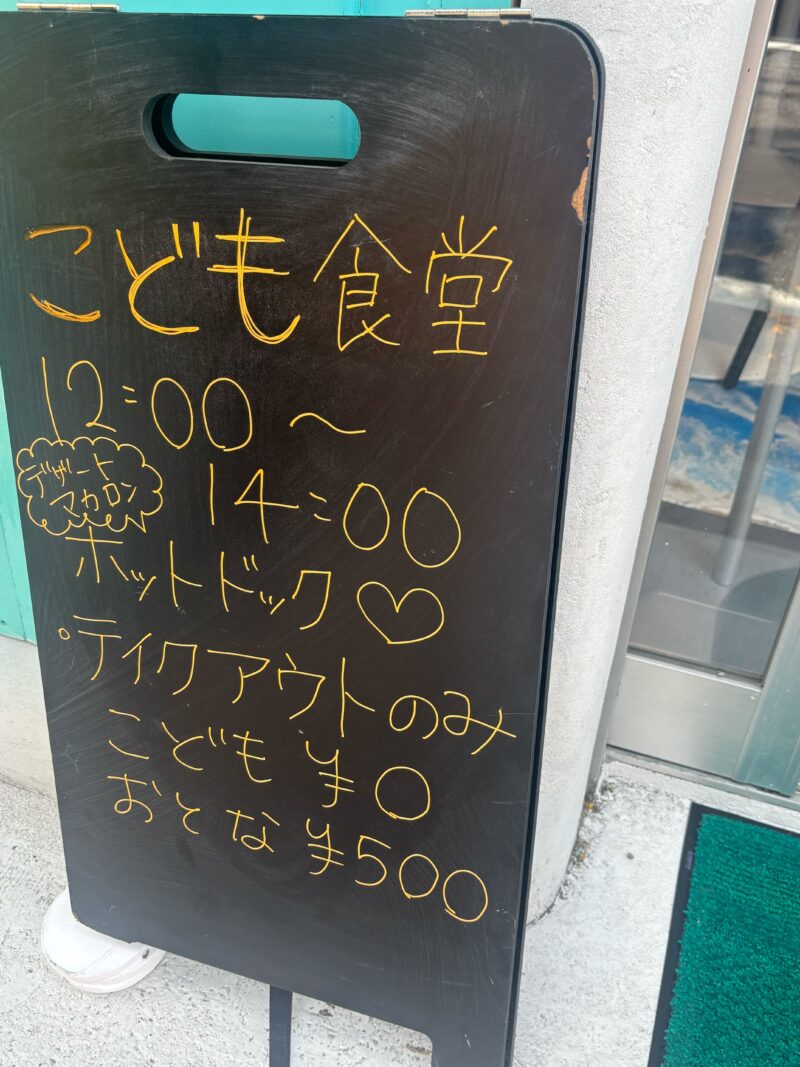 こども食堂
12:00～
14:00
デザート
マカロン
ホットドック♡
°テイクアウトのみ
こども ¥0
おとな ¥500